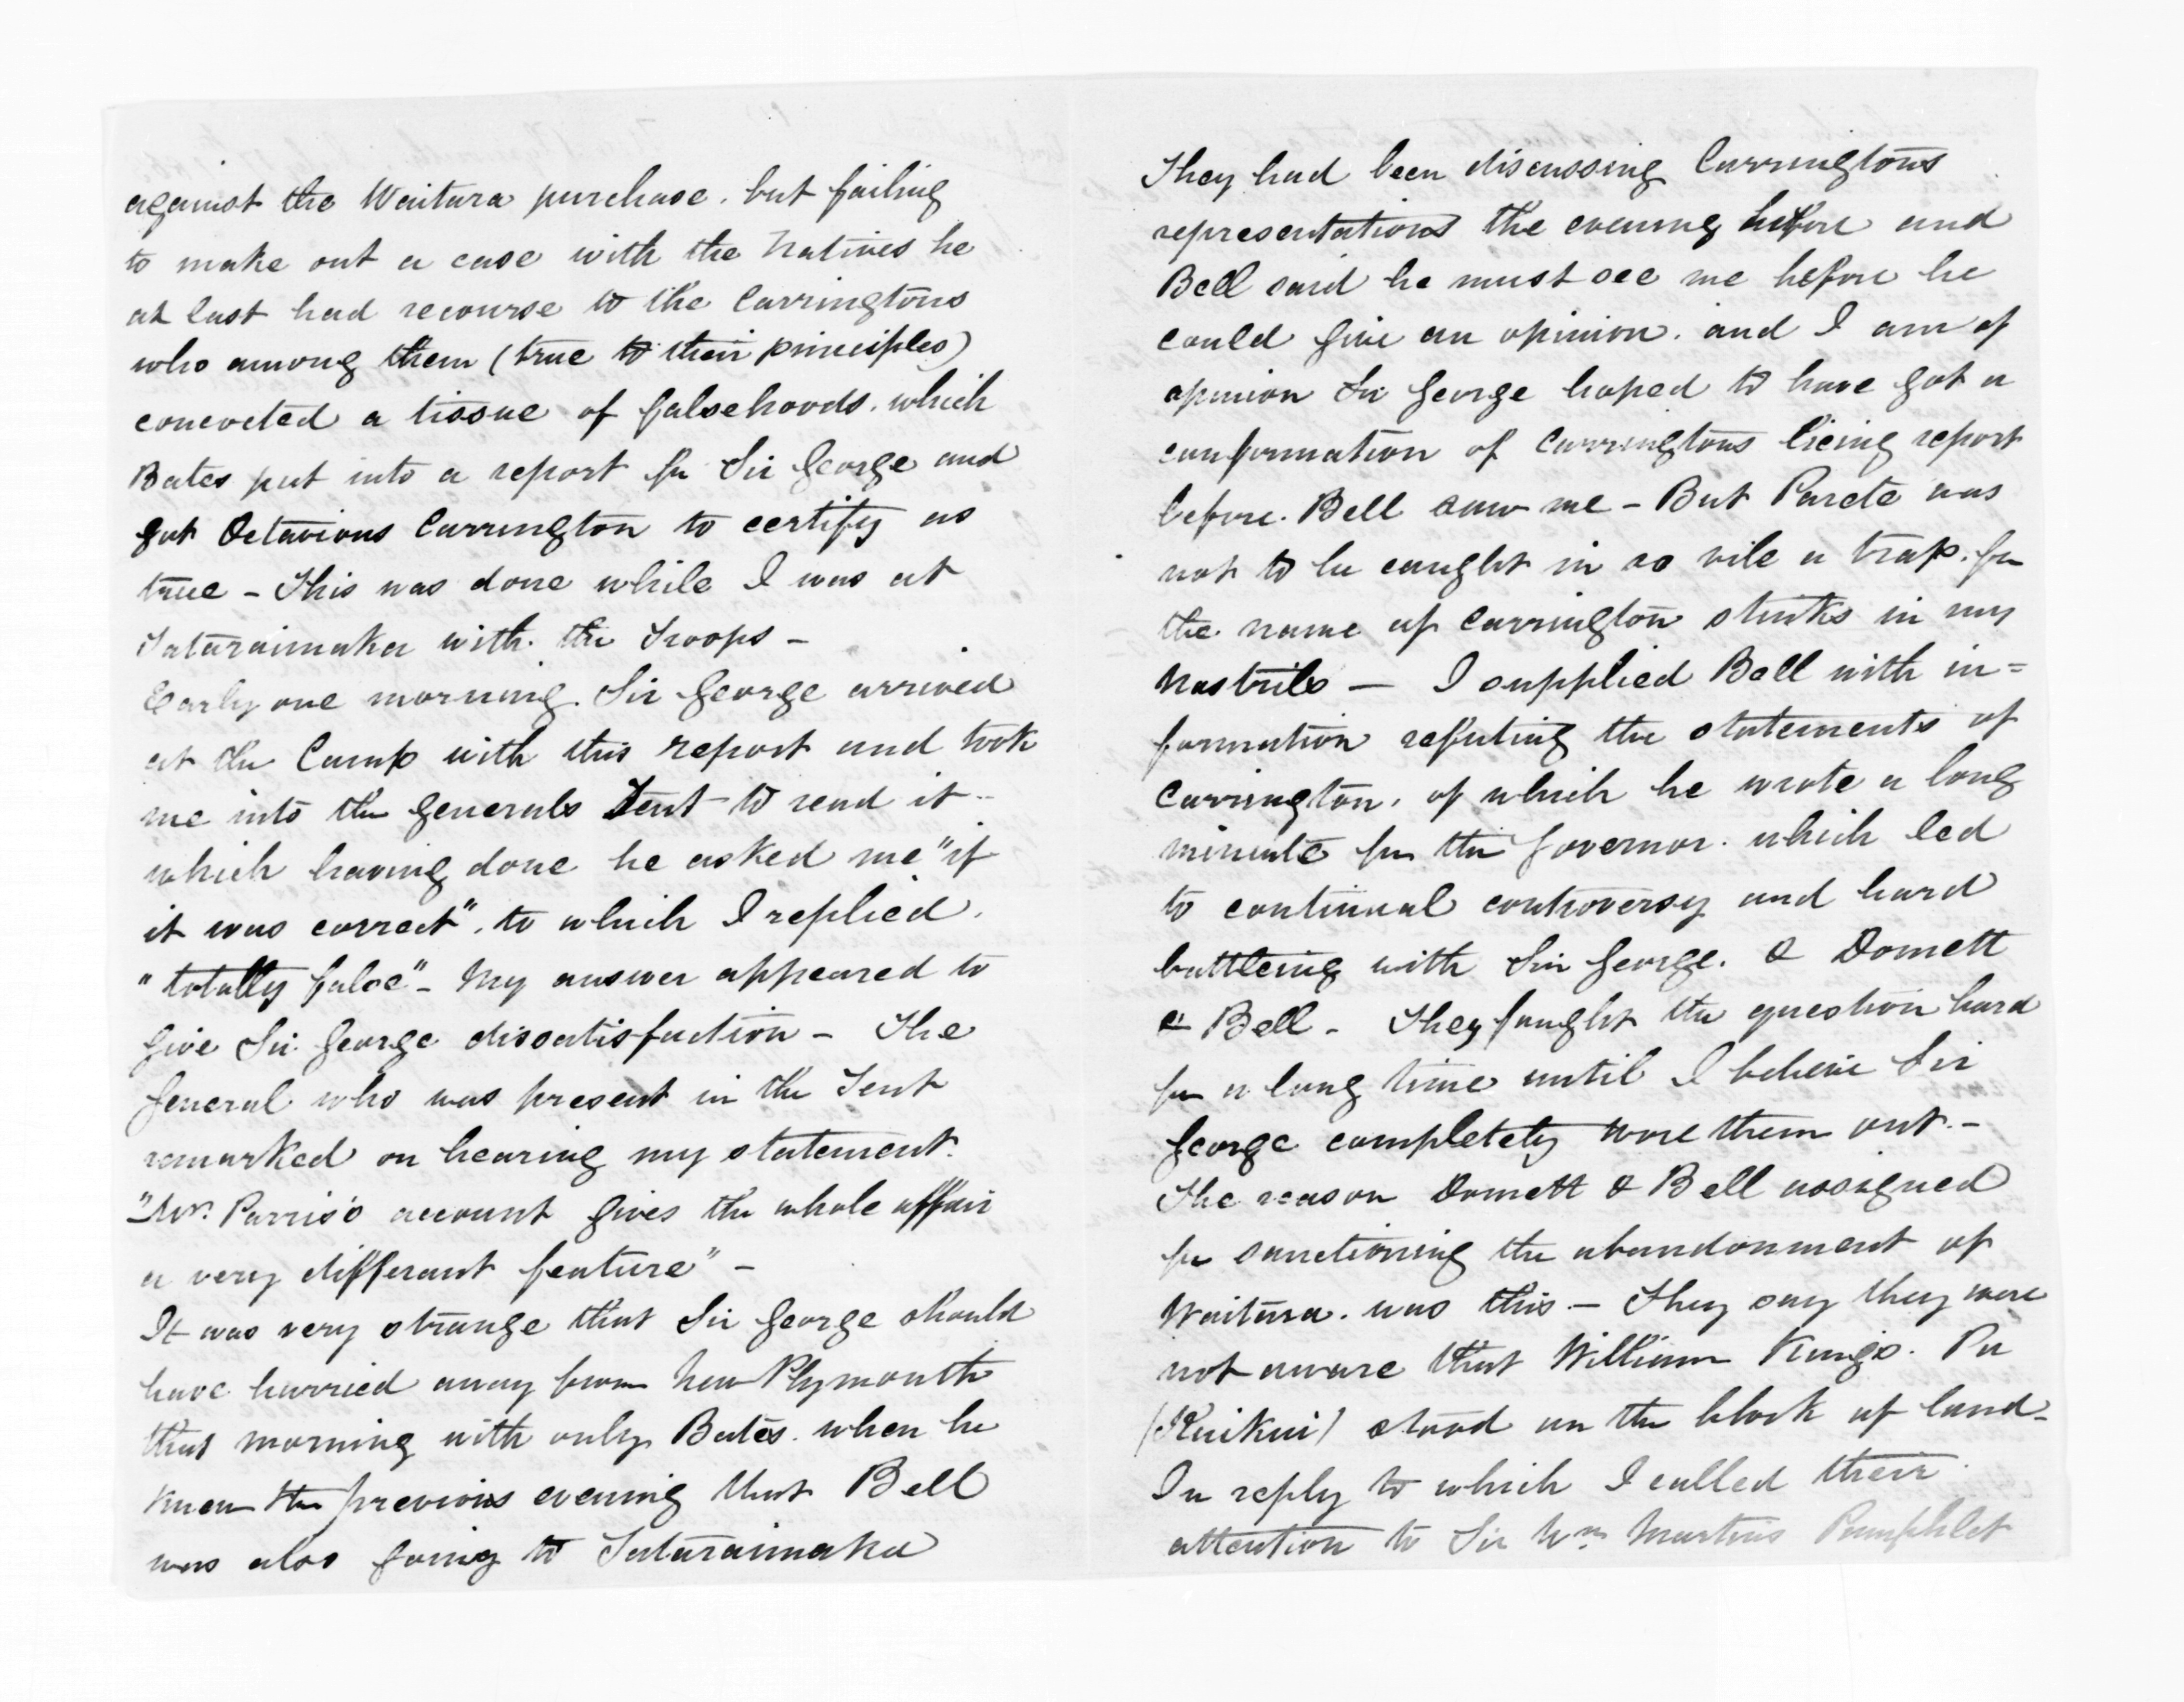 against the Waitara purchase. but failing
to make out a case with the Natives he
at last had recourse to the Carringtons
who among them (true to their principles)
concocted a tissue of falsehoods. which
Bates put into a report for Sir George and
got Octavious Carrington to certify as
true - This was done while I was at
Tataraimaka with the Troops -
Early one morning. Sir George arrived
at the Camp with this report and took
me into the Generals Tent to read it -
which having done he asked me "if
it was correct". to which I replied.
"totally false" - My answer appeared to
give Sir George dissatisfaction - The
General who was present in the Tent
remarked on hearing my statement.
"Mr. Parris's account gives the whole affair
a very differant feature" -
It was very strange that Sir George should
have hurried away from New Plymouth
that morning with only Bates. when he
knew the previous evening that Bell
was also going to Tataraimaka
They had been discussing Carringtons
representations the evening before and
Bell said he must see me before he
could give an opinion. and I am of
opinion Sir George hoped to have got a
conformation of Carringtons lieing report
before. Bell saw me - But Parete was
not to be caught in so vile a trap. for
the name of Carrington stinks in my
nostrils - I supplied Bell with in=
formation refuting the statements of
Carrington. of which he wrote a long
minute for the Governor. which led
to continual controversy and hard
battleing with Sir George. & Domett
& Bell - They fought the question hard
for a long time until I believe Sir
George completely wore them out. -
The reason Domett & Bell assigned
for sanctioning the abandonment of
Waitara. was this - They say they were
not aware that William Kings. Pa
(Kuikui) stood on the block of land -
In reply to which I called their
attention to Sir Wm Martins Pamphlet